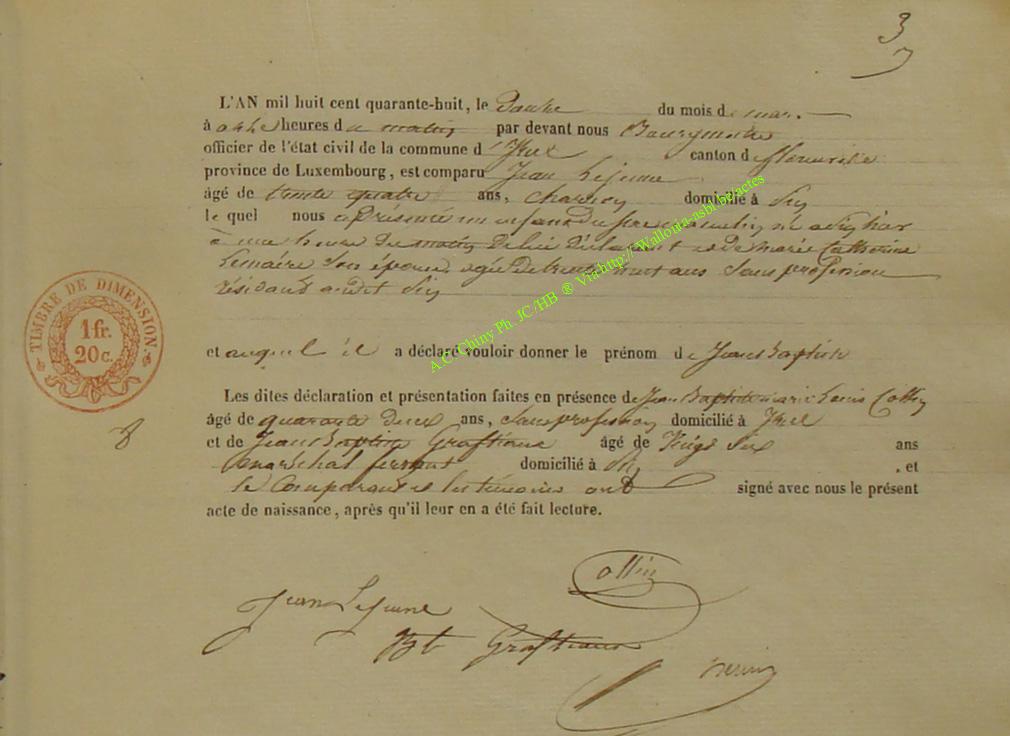 3
L'AN mil huit cent quarante-huit, le Douze du mois de mars
à onze heures du matin par devant nous Bourgmestre
officier de l'état civil de la commune d'Izel canton de florenville
province de Luxembourg, est comparu Jean Lejeune
âgé de trente quatre ans, charron domicilié à
le quel nous a présenté un enfant du sexe masculin né
à une heure du matin de lui déclarant et de marie Catherine
Lemaire son épouse, agée de trente huit ans sans profession
résidant audit
et auquel il a déclaré vouloir donner le prénom de Jean Baptiste
Les dites déclaration et présentation faites en présence de Jean Baptiste marie Louis Collin
âgé de quarante deux ans, sans profession domicilié à Izel
et de Jean Baptiste Graftiaux âgé de vingt six ans
maréchal ferrant domicilié à , et
le Comparant et les témoins ont signé avec nous le présent
acte de naissance, après qu'il leur en a été fait lecture.
TIMBRE DE DIMENSION
1 fr.
20 c.
Collin
Jean Lejeune
Bt Graftiaux
A.C. Chiny Ph. JC/HB ® Via http://Wallonia-asbl.be/actes